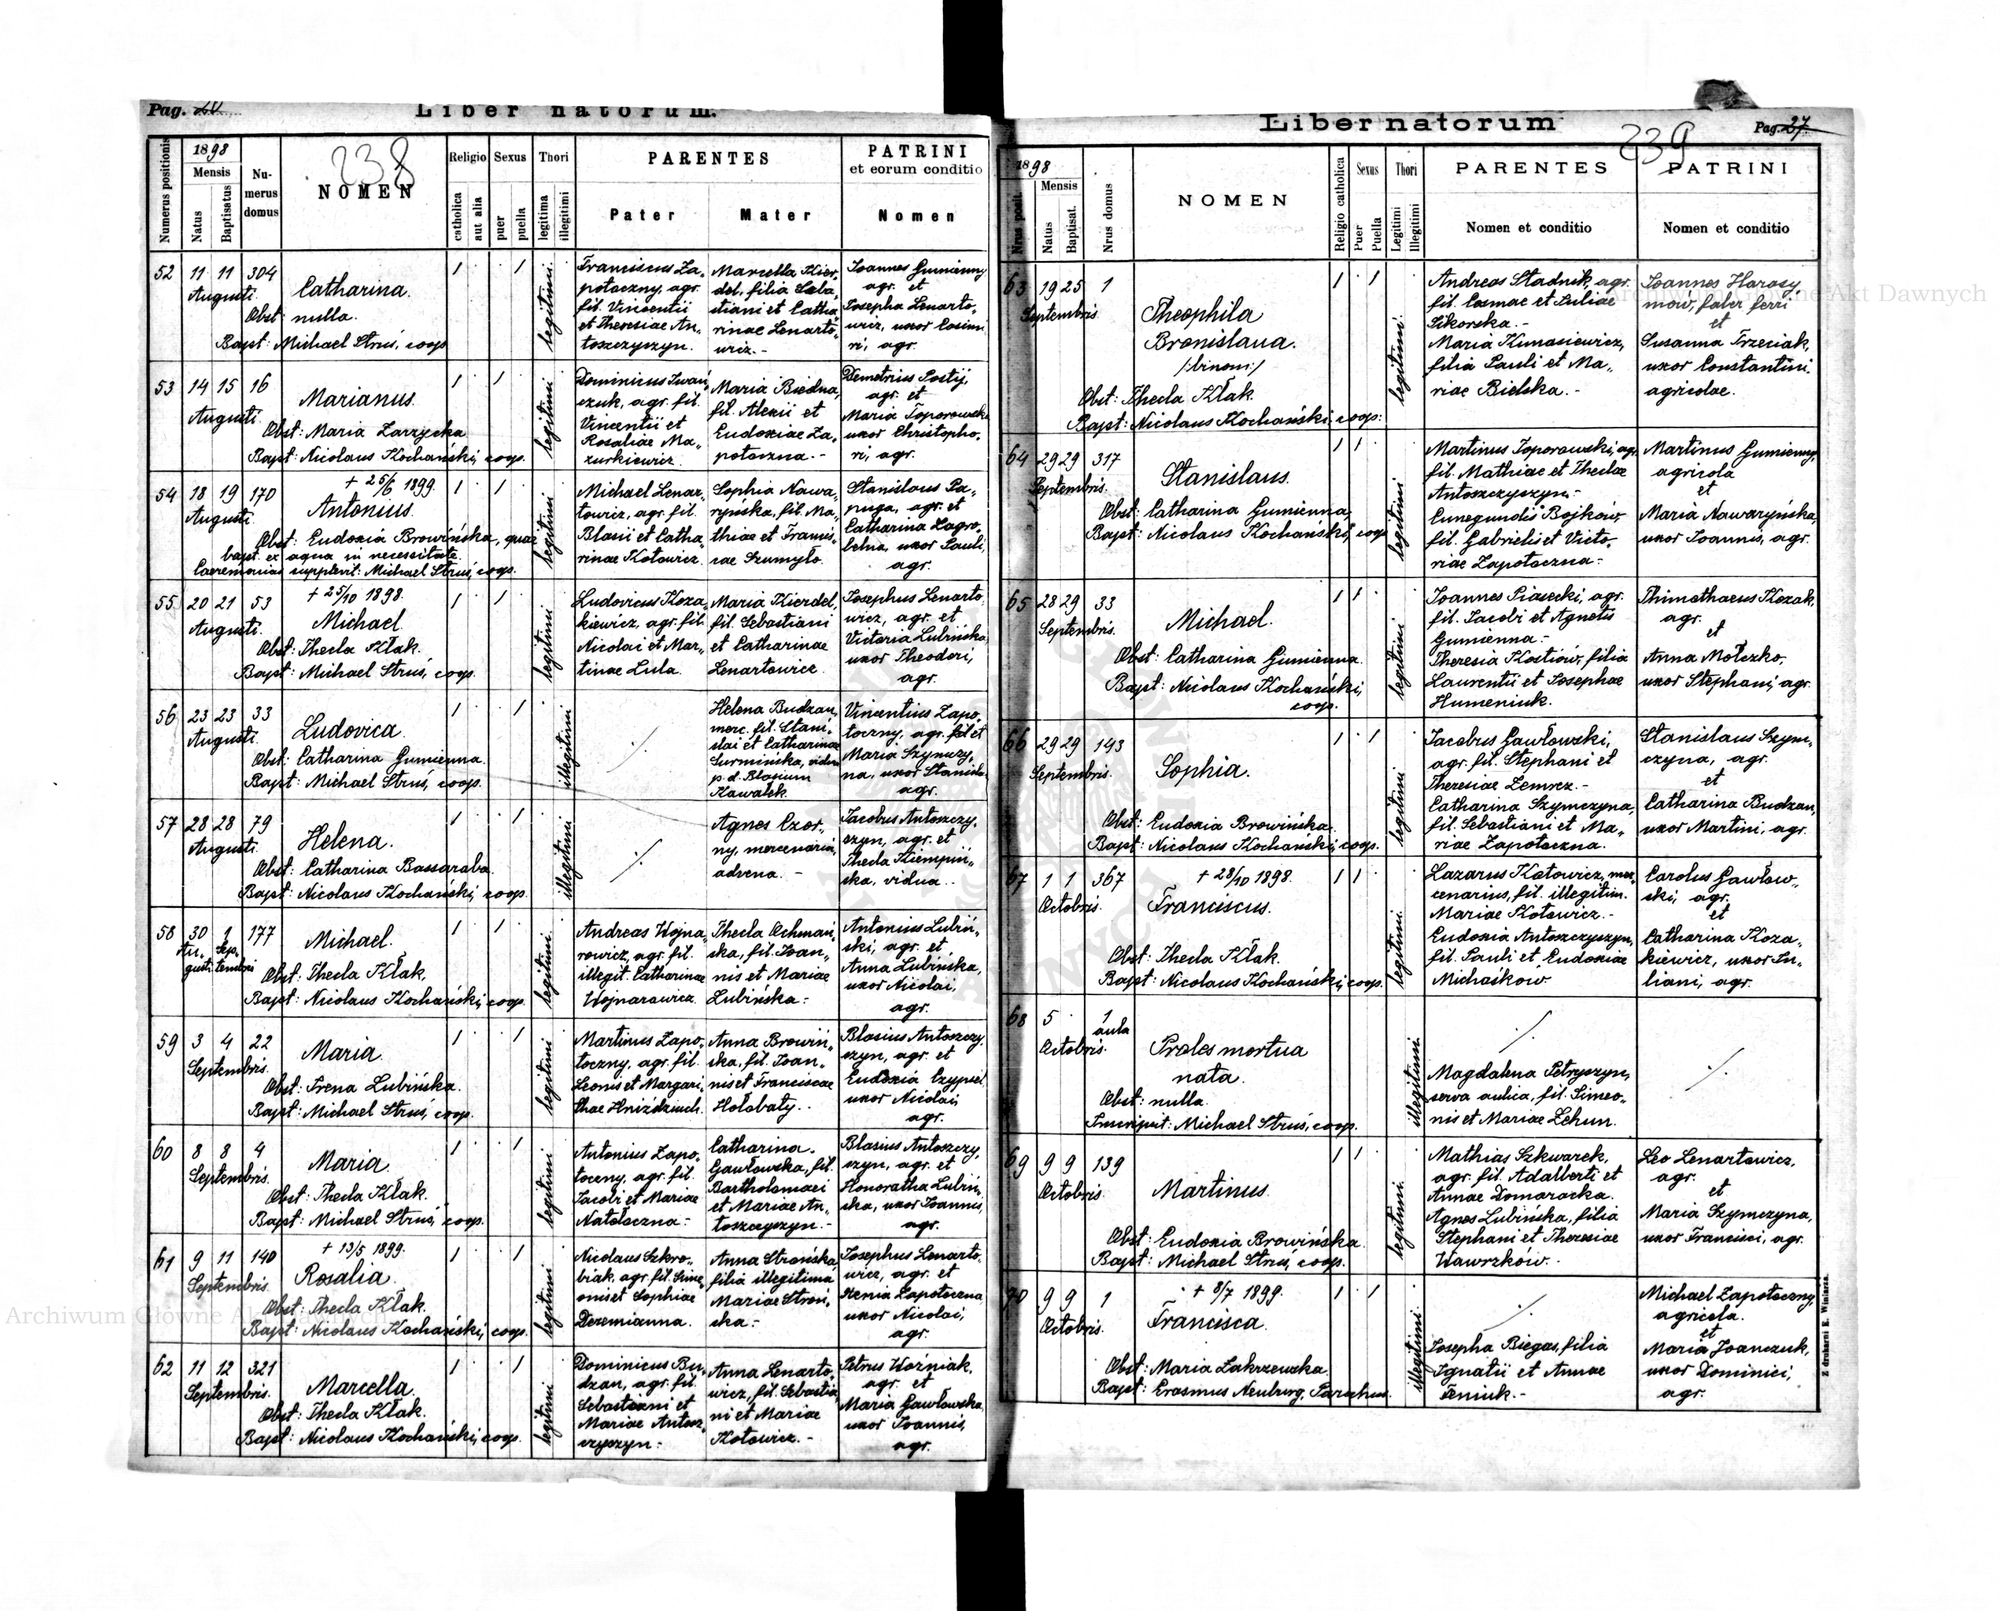 Pag.
Liber natorum.
Numerus positionis
1898
Mensis
Natus
Baptisatus
Numerus domus
238
NOMEN
Religio
catholica
aut alia
Sexus
puer
puella
Thori
legitima
illegitimi
PARENTES
Pater
Mater
PATRINI
et eorum conditio
Nomen
52 11 11 304
Augusti
Catharina.
Obst: nulla.
Bapt: Michael Struś, coop.
legitimi
Franciscus Za-
potoczny, agr.
fil. Vincentii
et Theresiae An-
toszczyszyn.
Marcella Kier-
del, filia Seba-
stiani et Catha-
rinae Lenarto-
wicz.-
Joannes Gumienny
agr. et
Josepha Lenarto-
wicz, uxor Casimi-
ri, agr.
53 14 15 16
Augusti
Marianus.
Obst: Maria Zarzycka
Bapt: Nicolaus Kochański, coop.
legitimi
Dominicus Iwań-
czuk, agr. fil.
Vincentii et
Rosaliae Ma-
zurkiewicz.
Maria Biedna,
fil. Alexii et
Eudoxiae Za-
potoczna.-
Demetrius Postij,
agr. et
Maria Toporowska
uxor Christopho-
ri, agr.
54 18 19 170
Augusti
+ 25/6 1899.
Antonius.
Obst: Eudoxia Browińska, quae
bapt. ex aqua in necessitate.
Caeremonias supplevit: Michael Struś, coop.
legitimi
Michael Lenar-
towicz, agr. fil.
Blasii et Catha-
rinae Kotowicz.
Sophia Nawa-
ryńska, fil. Ma-
thiae et Francis-
cae Szumyło.
Stanislaus Pa-
puga, agr. et
Catharina Zagro-
belna, uxor Pauli,
agr.
55 20 21 53
Augusti
+ 25/10 1898.
Michael.
Obst: Thecla Kłak.
Bapt: Michael Struś, coop.
legitimi
Ludovicus Koza-
kiewicz, agr. fil.
Nicolai et Mar-
tinae Lula.
Maria Kierdel,
fil. Sebastiani
et Catharinae
Lenartowicz.
Josephus Lenarto-
wicz, agr. et
Victoria Lubińska
uxor Theodori,
agr.
56 23 23 33
Augusti
Ludovica.
Obst: Catharina Gumienna.
Bapt: Michael Struś, coop.
illegitimi
Helena Budzan,
merc. fil. Stani-
slai et Catharinae
Surmińska, vidua
p. d. Blasium
Kawałek.
Vincentius Zapo-
toczny, agr. fil et
Maria Szymczy-
na, uxor Stanisla-
agr.
57 28 28 79
Augusti
Helena.
Obst: Catharina Bassaraba.
Bapt: Nicolaus Kochański, coop.
illegitimi
Agnes Czor-
ny, mercenaria,
advena. -
Jacobus Antoszczy-
szyn, agr. et
Thecla Kiempiń-
ska, vidua..
58 30 1 177
Au-
gusti
Sep-
tembris
Michael.
Obst: Thecla Kłak.
Bapt: Nicolaus Kochański, coop.
legitimi
Andreas Wojna-
rowicz, agr. fil.
illegit. Catharinae
Wojnarowicz.
Thecla Ochmań-
ska, fil. Joan-
nis et Mariae
Lubińska.-
Antonius Lubiń-
ski, agr. et
Anna Lubińska,
uxor Nicolai,
agr.
59 3 4 22
Septembris.
Maria.
Obst: Irena Lubińska.
Bapt: Michael Struś, coop.
legitimi
Martinus Zapo-
toczny, agr. fil.
Leonis et Margari-
thae Hniździuch.
Anna Browiń-
ska, fil. Joan-
nis et Franciscae
Hołobaty..
Blasius Antoszczy-
szyn, agr. et
Eudoxia Czypiel
uxor Nicolai,
agr.
60 8 8 4
Septembris.
Maria.
Obst: Thecla Kłak.
Bapt: Michael Struś, coop.
legitimi
Antonius Zapo-
toczny, agr. fil.
Jacobi et Mariae
Natołoczna.-
Catharina
Gawłowska, fil.
Bartholomaei
et Mariae An-
toszczyszyn.-
Blasius Antoszczy-
szyn, agr. et
Honoratha Lubiń-
ska, uxor Joannis,
agr.
61 9 11 140
Septembris.
+ 13/5 1899.
Rosalia.
Obst: Thecla Kłak.
Bapt: Nicolaus Kochański, coop.
legitimi
Nicolaus Szkro-
biak, agr. fil. Sime-
onis et Sophiae
Deremianna.
Anna Strońska,
filia illegitima
Mariae Stroń-
ska.-
Josephus Lenarto-
wicz, agr. et
Xenia Zapotoczna
uxor Nicolai,
agr.
62 11 12 321
Septembris.
Marcella.
Obst: Thecla Kłak.
Bapt: Nicolaus Kochański, coop.
legitimi
Dominicus Bu-
dzan, agr. fil.
Sebastiani et
Mariae Antosz-
czyszyn.-
Anna Lenarto-
wicz, fil. Sebastia-
ni et Mariae
Kotowicz.-
Petrus Woźniak,
agr. et
Maria Gawłowska
uxor Joannis,
agr.
Liber natorum
239
Pag. 27
1898
Nrus posit.
Mensis
Natus
Baptisat.
Nrus domus
NOMEN
Religio catholica
Sexus
Puer
Puella
Thori
Legitimi
Illegitimi
PARENTES
Nomen et conditio
PATRINI
Nomen et conditio
63 19 25 1
Septembris
Theophila
Bronislava.
/:binom:/
Obst: Thecla Kłak.
Bapt: Nicolaus Kochański, coop.
legitimi.
Andreas Stadnik, agr.
fil. Cosmae et Juliae
Sikorska.-
Maria Kimasiewicz,
filia Pauli et Ma-
riae Bielska.-
Joannes Harasy-
mów, faber ferri
et
Susanna Trzeciak,
uxor Constantini.
agricolae.
64 29 29 317
Septembris.
Stanislaus.
Obst: Catharina Gumienna,
Bapt: Nicolaus Kochański, coop.
legitimi
Martinus Toporowski, agr.
fil. Mathiae et Theclae
Antoszczyszyn.-
Cunegundis Bojków,
fil. Gabrielis et Victo-
riae Zapotoczna.-
Martinus Gumienny,
agricola
et
Maria Nawaryńska,
uxor Joannis, agr.
65 28 29 33
Septembris.
Michael.
Obst: Catharina Gumienna.
Bapt: Nicolaus Kochański,
coop.
legitimi
Joannes Piasecki, agr.
fil. Jacobi et Agnetis
Gumienna.-
Theresia Kostiów, filia
Laurentii et Josephae
Humeniuk.
Thimothaeus Kozak,
agr.
et
Anna Mołczko,
uxor Stephani, agr.
66 29 29 143
Septembris.
Sophia.
Obst: Eudoxia Browińska.
Bapt: Nicolaus Kochański, coop.
legitimi
Jacobus Gawłowski,
agr. fil. Stephani et
Theresiae Zemrcz.-
Catharina Szymczyna,
fil. Sebastiani et Ma-
riae Zapotoczna.
Stanislaus Szym-
czyna, agr.
et
Catharina Budzan,
uxor Martini, agr.
67 1 1 367
Octobris.
+ 28/10 1898.
Franciscus.
Obst: Thecla Kłak.
Bapt: Nicolaus Kochański, coop.
legitimi
Lazarus Kotowicz, mer-
cenarius, fil. illegitim.
Mariae Kotowicz.-
Eudoxia Antoszczyszyn,
fil. Pauli et Eudoxiae
Michaśków.
Carolus Gawłow-
ski, agr.
et
Catharina Koza-
kiewicz, uxor Ju-
liani, agr.
68 5 1
aula
Octobris.
Proles mortua
nata.
Obst: nulla.
Inscripsit: Michael Struś, coop.
illegitimi
Magdalena Petryszyn,
serva aulica, fil. Simeo-
nis et Mariae Zehun.
69 9 9 139
Octobris.
Martinus.
Obst: Eudoxia Browińska.
Bapt: Michael Struś, coop.
legitimi.
Mathias Szkwarek,
agr. fil. Adalberti et
Annae Domaracka.
Agnes Lubińska, filia
Stephani et Theresiae
Wawrzków..
Leo Lenartowicz,
agr.
et
Maria Szymczyna,
uxor Francisci, agr.
70 9 9 1
Octobris.
+ 3/7 1899.
Francisca.
Obst: Maria Zakrzewska.
Bapt: Erasmus Neuburg, Parochus.
illegitimi.
Josepha Biegas, filia
Ignatii et Annae
Feniuk.-
Michael Zapotoczny,
agricola.
et
Maria Joanczuk,
uxor Dominici,
agr.
Z drukarni E. Winiarza.
Archiwum Główne Akt Dawnych
Archiwum Główne Akt Dawnych